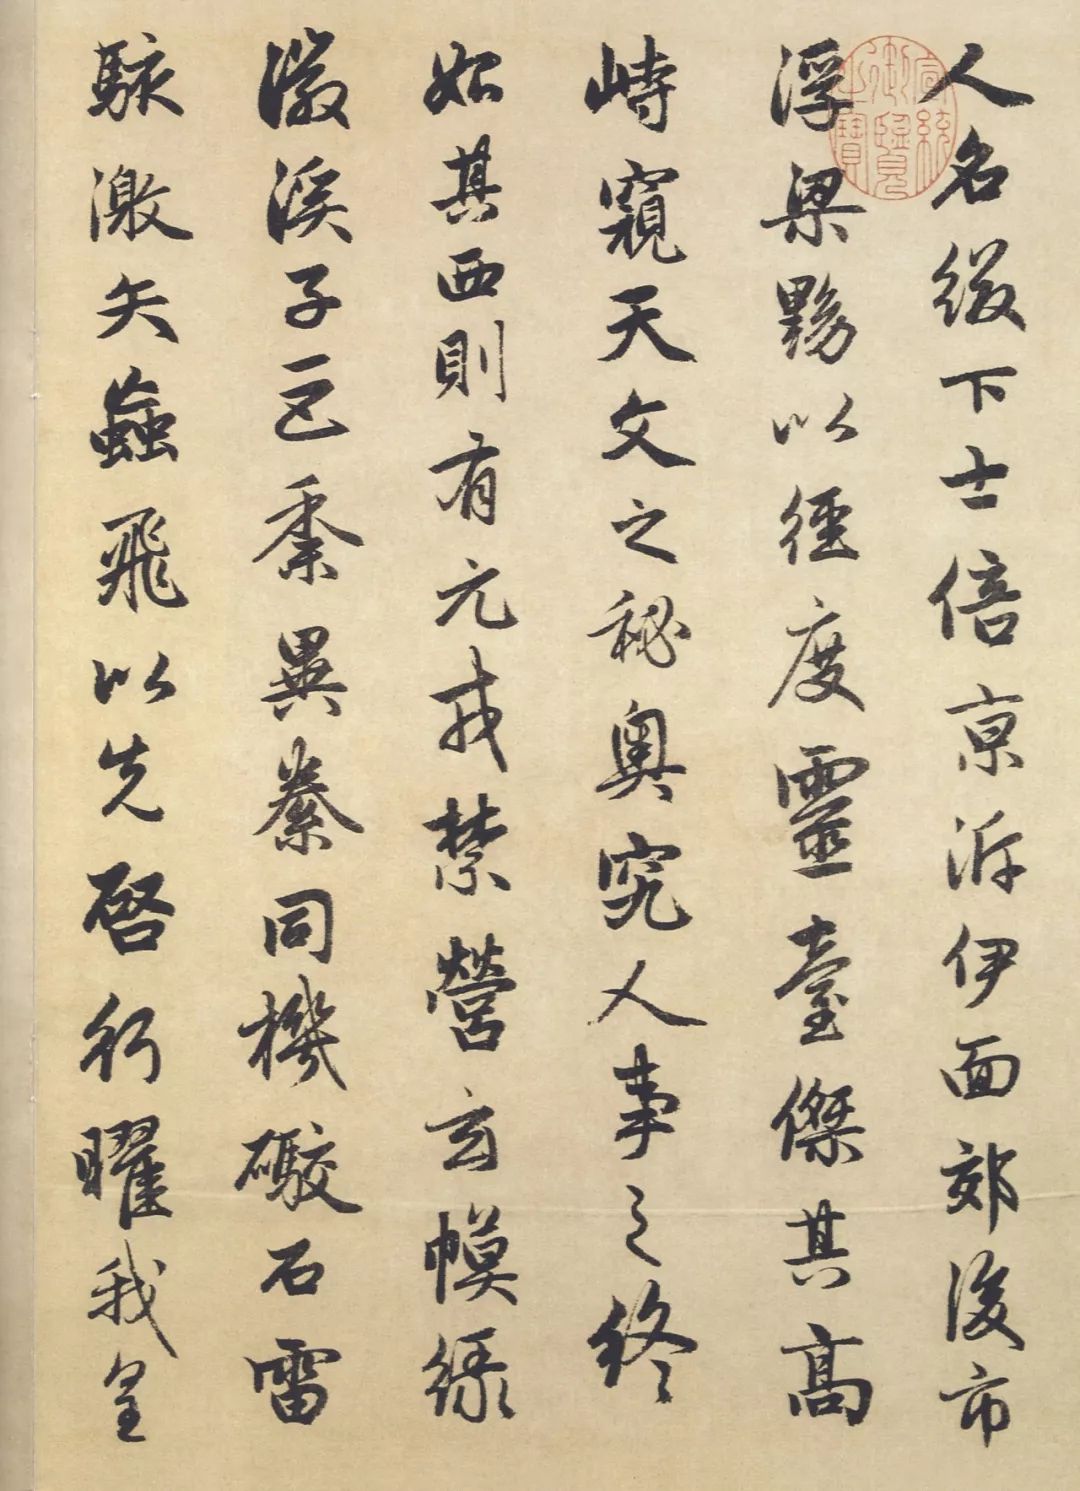 人名綴下士倍京泝伊面郊後市
浮梁黝以徑度靈臺傑其高
峙窺天文之秘奧究人事之終
始其西則有元戎禁營玄幙綠
徽溪子巨黍異絭同機礮石雷
駭激矢蝱飛以先啓行曜我皇
宣統
御覽
之寶